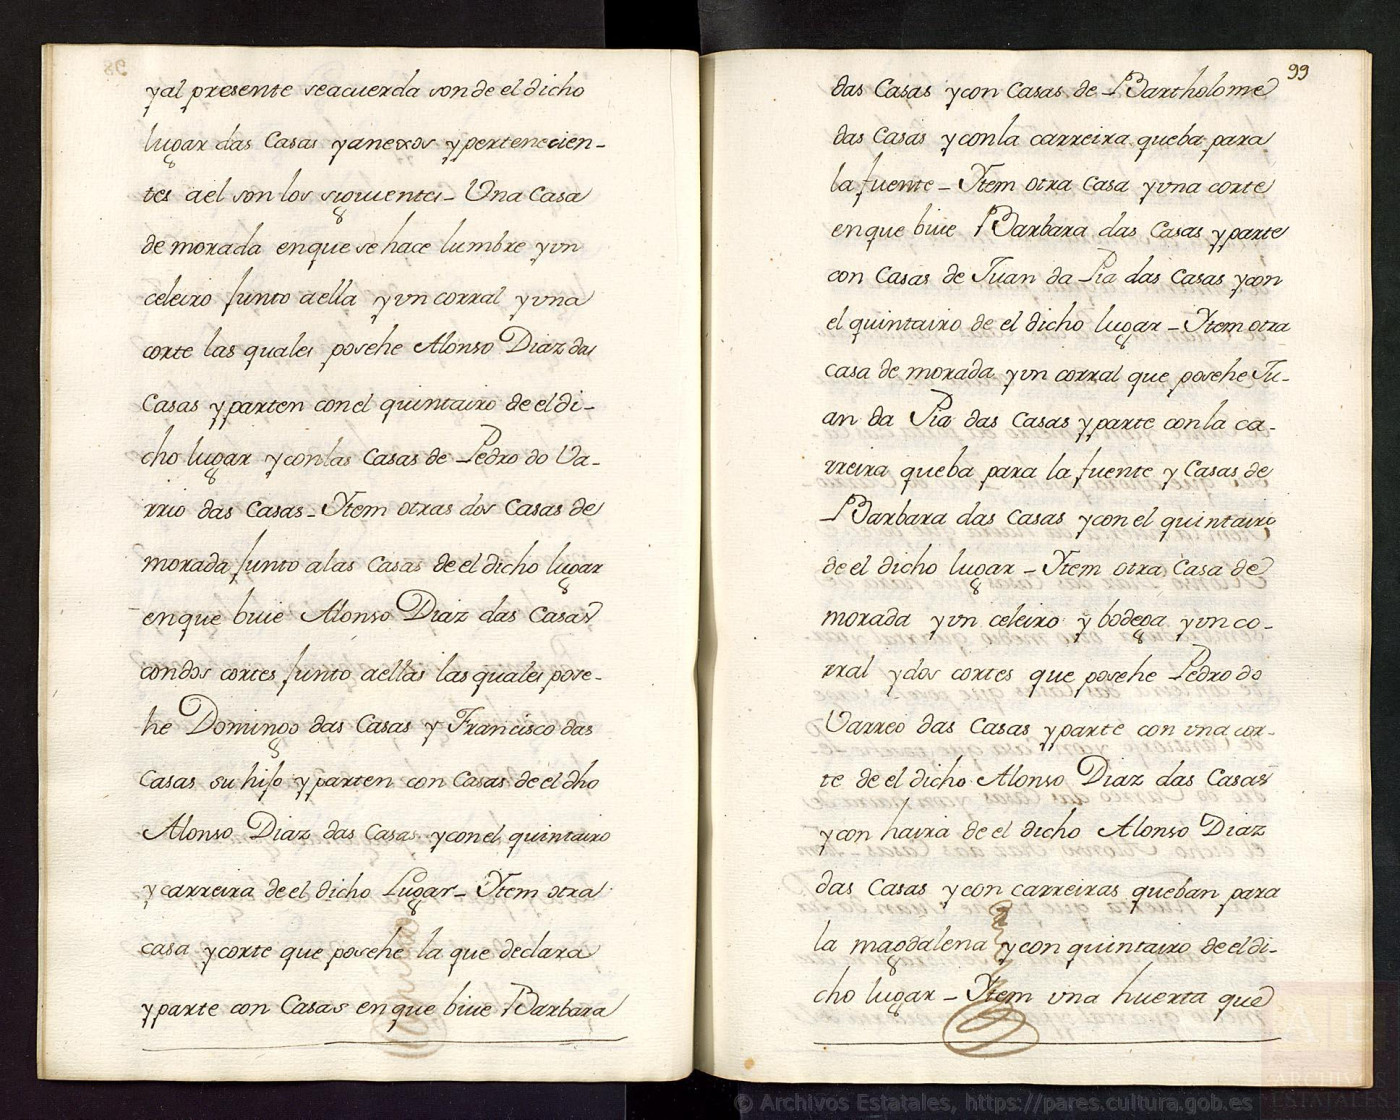 y al presente se acuerda son de el dicho
lugar das Casas y anexos y pertenecien-
tes a el son los siguientes - Una Casa
de morada en que se hace lumbre y vn
celeiro Junto a ella y vn corral y vna
corte las quales posehe Alonso Diaz das
Casas y parten con el quintairo de el di-
cho lugar y con las Casas de Pedro do Va-
rrio das Casas - Ytem otras dos Casas de
morada Junto a las Casas de el dicho lugar
en que biue Alonso Diaz das Casas
con dos cortes Junto a ellas las quales pose-
he Domingo das Casas y Francisco das
Casas su hijo y parten con Casas de el dho
Alonso Diaz das Casas y con el quintairo
y carreira de el dicho Lugar - Ytem otra
casa y corte que posehe la que declara
y parte con Casas en que biue Barbara
99
das Casas y con Casas de Bartholome
das Casas y con la carreira que ba para
la fuente - Ytem otra Casa y vna corte
en que biue Barbara das Casas y parte
con Casas de Juan da Pia das Casas y con
el quintairo de el dicho lugar - Ytem otra
casa de morada y vn corral que posehe Ju-
an da Pia das Casas y parte con la ca-
rreira que ba para la fuente y Casas de
Barbara das Casas y con el quintairo
de el dicho lugar - Ytem otra Casa de
morada y vn celeiro y bodega y vn co-
rral y dos cortes que posehe Pedro do
Varreo das Casas y parte con vna cor-
te de el dicho Alonso Diaz das Casas
y con haira de el dicho Alonso Diaz
das Casas y con carreiras que ban para
la magdalena y con quintairo de el di-
cho lugar - Ytem vna huerta que
© Archivos Estatales, https://pares.cultura.gob.es
ARCHIVOS
ESTATALES